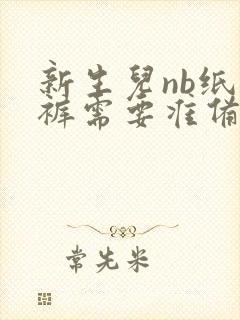 新生兒nb纸
裤需要准备
常先米